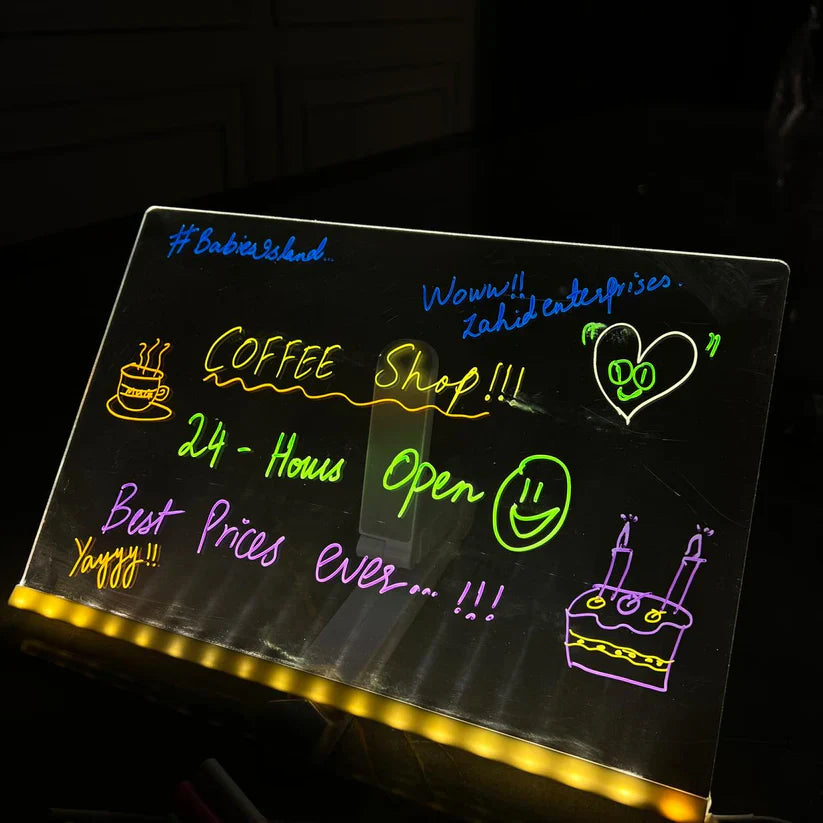 #BabiesIsland...
Woww!!
Zahid enterprises.
COFFEE Shop!!!
24-Hours Open
Best Prices ever...!!!
Yayyy!!